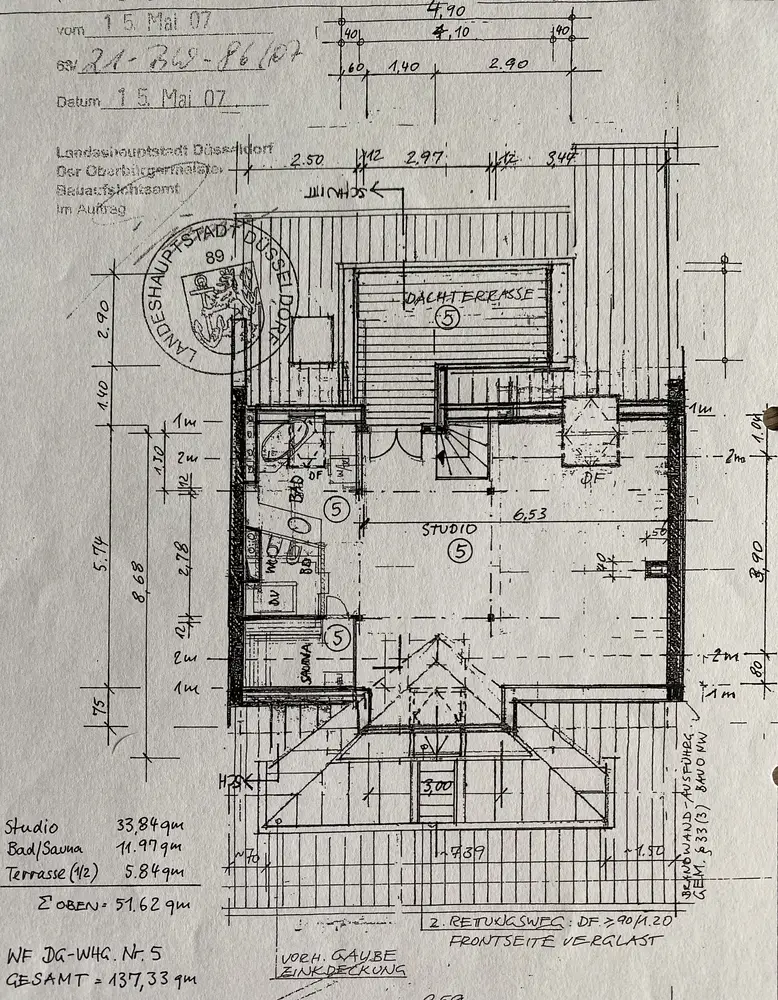 4,90
vom 15. Mai 07
40 4,10 40
63/ 21-BW-86/07
60 1,40 2.90
Datum 15. Mai 07
Landeshauptstadt Düsseldorf
Der Oberbürgermeister
Bauaufsichtsamt
Im Auftrag
2.50 12 2,97 12 3,44
SCHNITT
LANDESHAUPTSTADT DÜSSELDORF
89
DACHTERRASSE
5
2.90
1.40
1m
1m
2m
2m
1.30
12
DF
DF
BAD
5
6,53
STUDIO
5
50
40
5.74
8,68
2,78
3,90
WC
BD
DU
12
5
SAUNA
2m
2m
1m
1m
80
75
3,00
BRANDWAND-AUSFÜHRG.
GEM. § 33(3) BAUO NW
Studio 33,84 qm
Bad/Sauna 11.97 qm
Terrasse (1/2) 5.84 qm
~70 ~7.39 ~1.50
Σ OBEN = 51.62 qm
2. RETUNGSWEG: DF ≥ 90/1.20
FRONTSEITE VERGLAST
WF DG-WHG. Nr. 5
GESAMT = 137,33 qm
VORH. GAUBE
ZINKDECKUNG